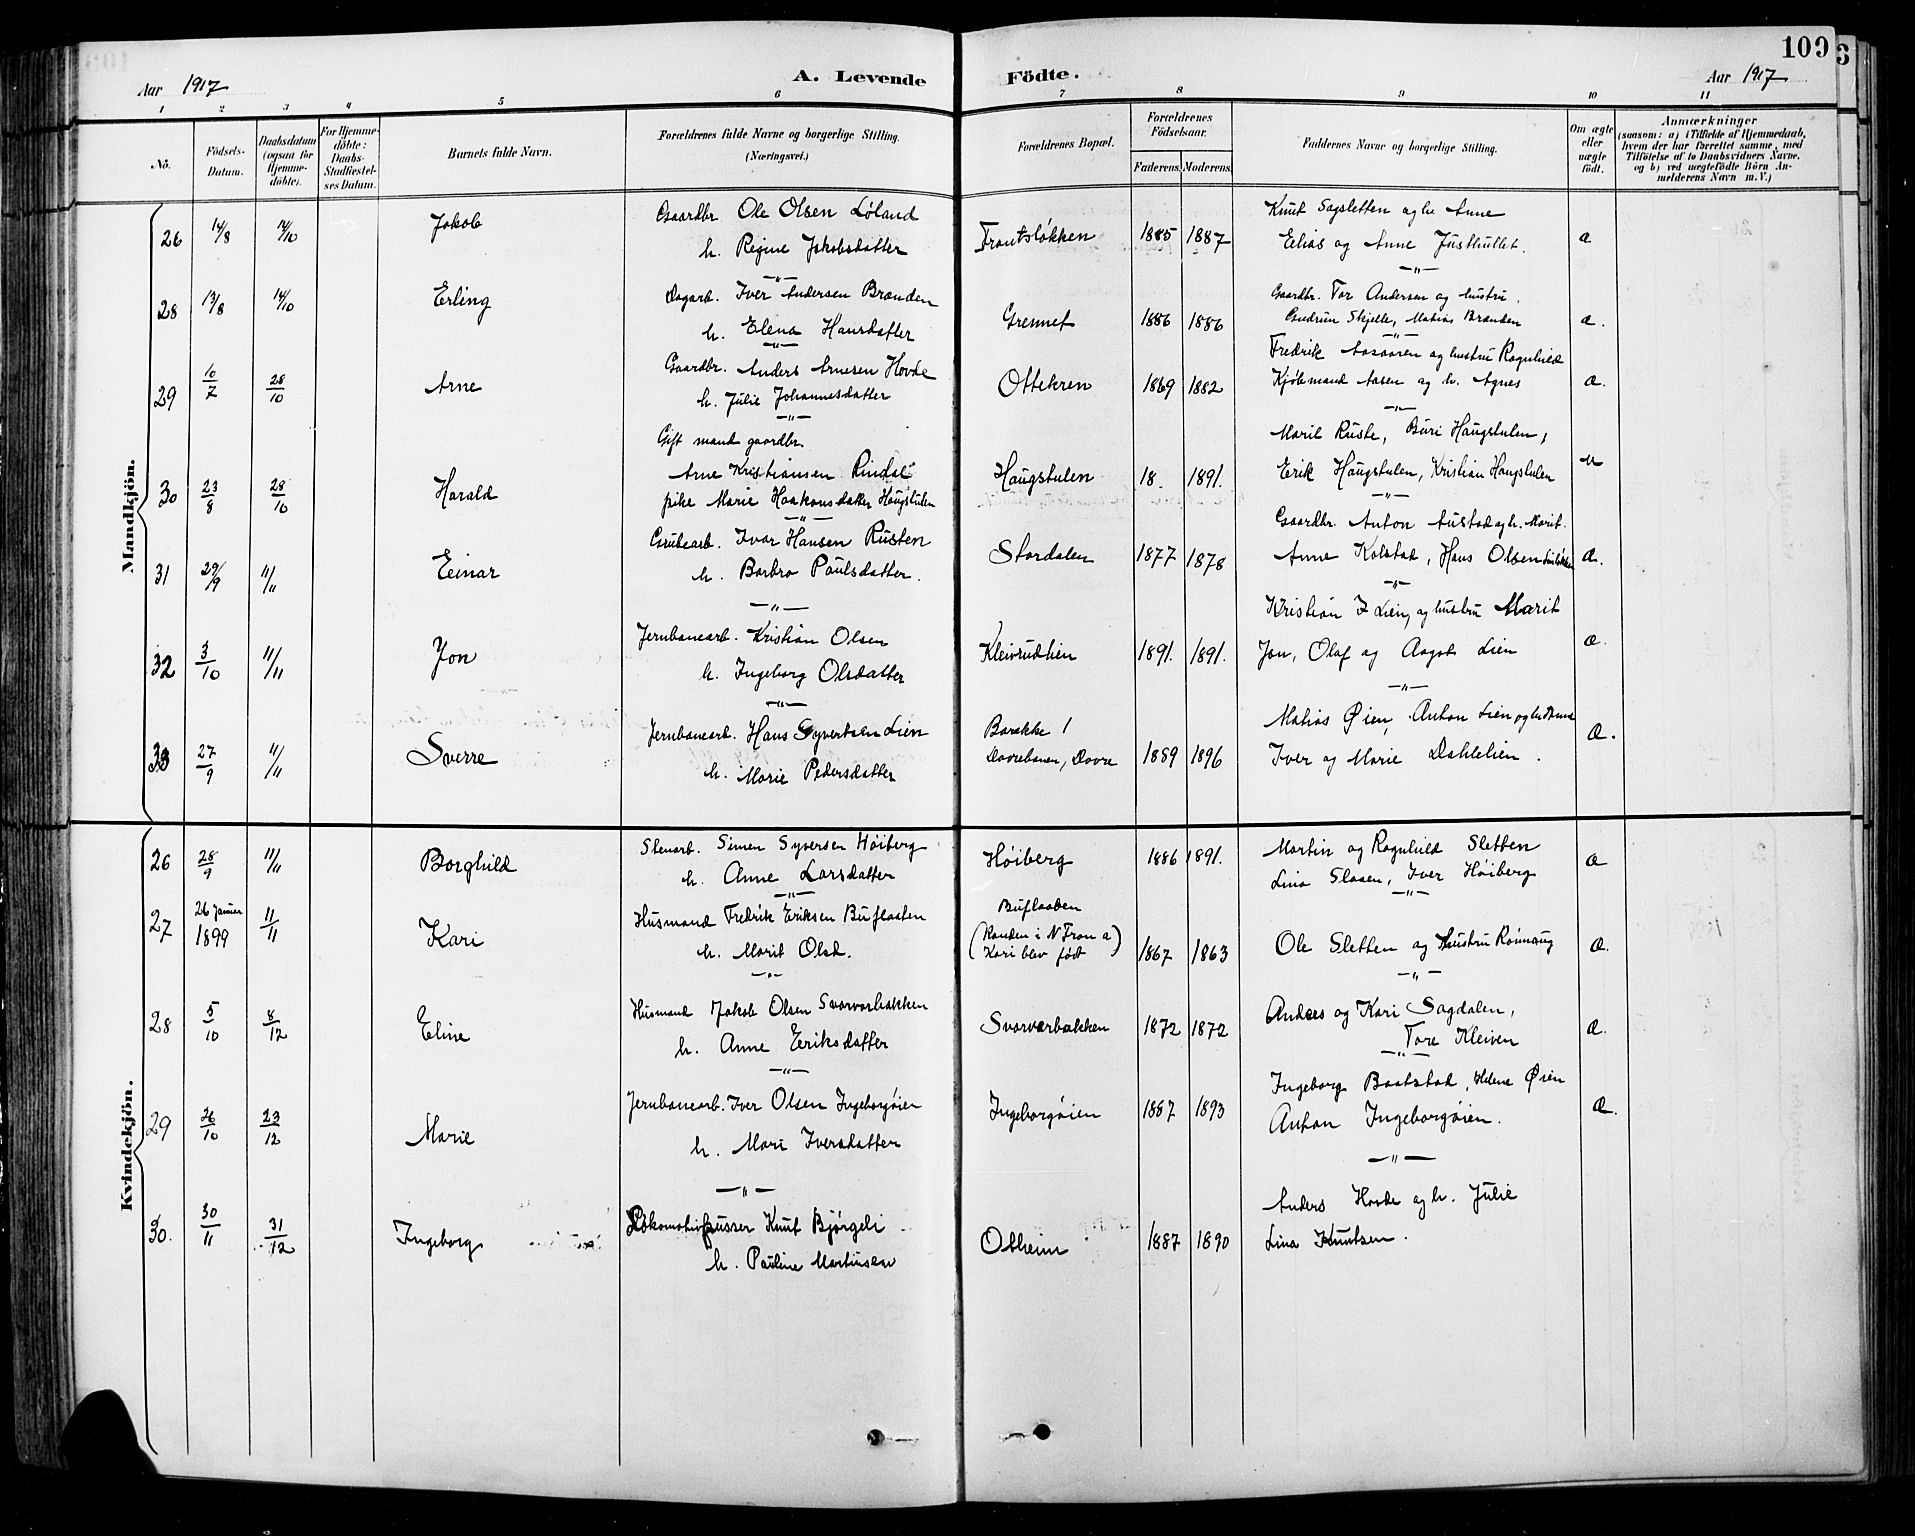 109
3
Aar 1917
A. Levende Födte.
Aar 1917
1 2 3 4 5 6 7 8 9 10 11
No.
Födsels-Datum.
Daabsdatum (ogsaa for Hjemme-döbte).
For Hjemme-döbte: Daabs-Stadfæstel-ses Datum.
Barnets fulde Navn.
Forældrenes fulde Navne og borgerlige Stilling. (Næringsvei.)
Forældrenes Bopæl.
Forældrenes Födselsaar.
Faderens. Moderens.
Faddernes Navne og borgerlige Stilling.
Om ægte eller uægte født.
Anmærkninger
(saasom: a) i Tilfælde af Hjemmedaab, hvem der har forrettet samme, med Tilföielse af to Daabsvidners Navne, og b) ved uægtefödte Börn An-melderens Navn m. V.)
Mandkjön.
26 14/8 14/10 Jakob
Gaardbr Ole Olsen Løland
h. Regine Jakobsdatter
1885 1887
Knut Sagsletten og h. Anne
Elias og Anne
a
28 13/8 14/10 Erling
Dagarb. Iver Andersen Brænden
h. Elena Hansdatter
Grennet 1886 1886
Gaardbr. Tor Andersen og hustru.
Gudrun Skjelle, Matias Brænden
æ.
29 10/7 28/10 Arne
Gaardbr. Anders Arnesen Hovde
h. Julie Johannesdatter
Ottekren 1869 1882
Fredrik Aasaaren og hustru Ragnhild
Kjøbmand Aasen og h. Agnes
æ.
30 23/8 28/10 Harald
Gift mand gaardbr.
Arne Kristiansen Rindal
pike Marie Haakonsdatter Haugstulen
Haugstulen 18. 1891.
Marit Ruste, Buri Haugstulen,
Erik Haugstulen, Kristian Haugstulen
u
31 29/9 11/11 Einar
Grubearb. Ivar Hansen Rusten
h. Barbro Paulsdatter.
Stordalen 1877 1878
Gaardbr. Anton Austad og h. Marit.
Anne Kolstad, Hans Olsen
æ.
32 3/10 11/11 Jon
Jernbanearb. Kristian Olsen
h. Ingeborg Olsdatter
Kleivrudlien 1891. 1891.
Kristian I Lien, og hustru Marit
Jon, Olaf og Aagot Lien
æ.
33 27/9 11/11 Sverre
Jernbanearb. Hans Syvertsen Lien
h. Marie Pedersdatter
Barakke 1
Dovrebanen, Dovre 1889 1896
Matias Øien, Anton Lien og
Iver og Marie Dahlelien.
Æ.
Kvindekjön.
26 28/9 11/11 Borghild
Stenarb. Simen Syversen Høiberg
h. Anne Larsdatter
Høiberg 1886 1891.
Martin og Ragnhild Sletten
Lina Slaaen, Iver Høiberg
æ
27 26 Januar 1899 11/11 Kari
Husmand Fredrik Eriksen Buflaaten
h. Marit Olsd.
Buflaaden
(Randen i N Fron a)
(Kari blev født) 1867 1863
Ole Sletten og hustru Rønnaug
Æ.
28 5/10 8/12 Eline
Husmand Jakob Olsen Svarvarbakken
h. Anne Eriksdatter
Svarvarbakken 1872 1872
Anders og Kari Sagdalen,
Tore Kleiven
Æ.
29 26/10 23/12 Marie
Jernbanearb. Iver Olsen Ingeborgøien
h. Mari Iversdatter
Ingeborgøien 1887 1893
Ingeborg Baatstad, Helene Øien
Anton Ingeborgøien.
Æ.
30. 30/11 31/12 Ingeborg
Lokomotivpusser Knut Bjørgeli
h. Pauline Martinsen
Otheim 1887 1890
Anders Hovde og h. Julie
Lina Knutsen.